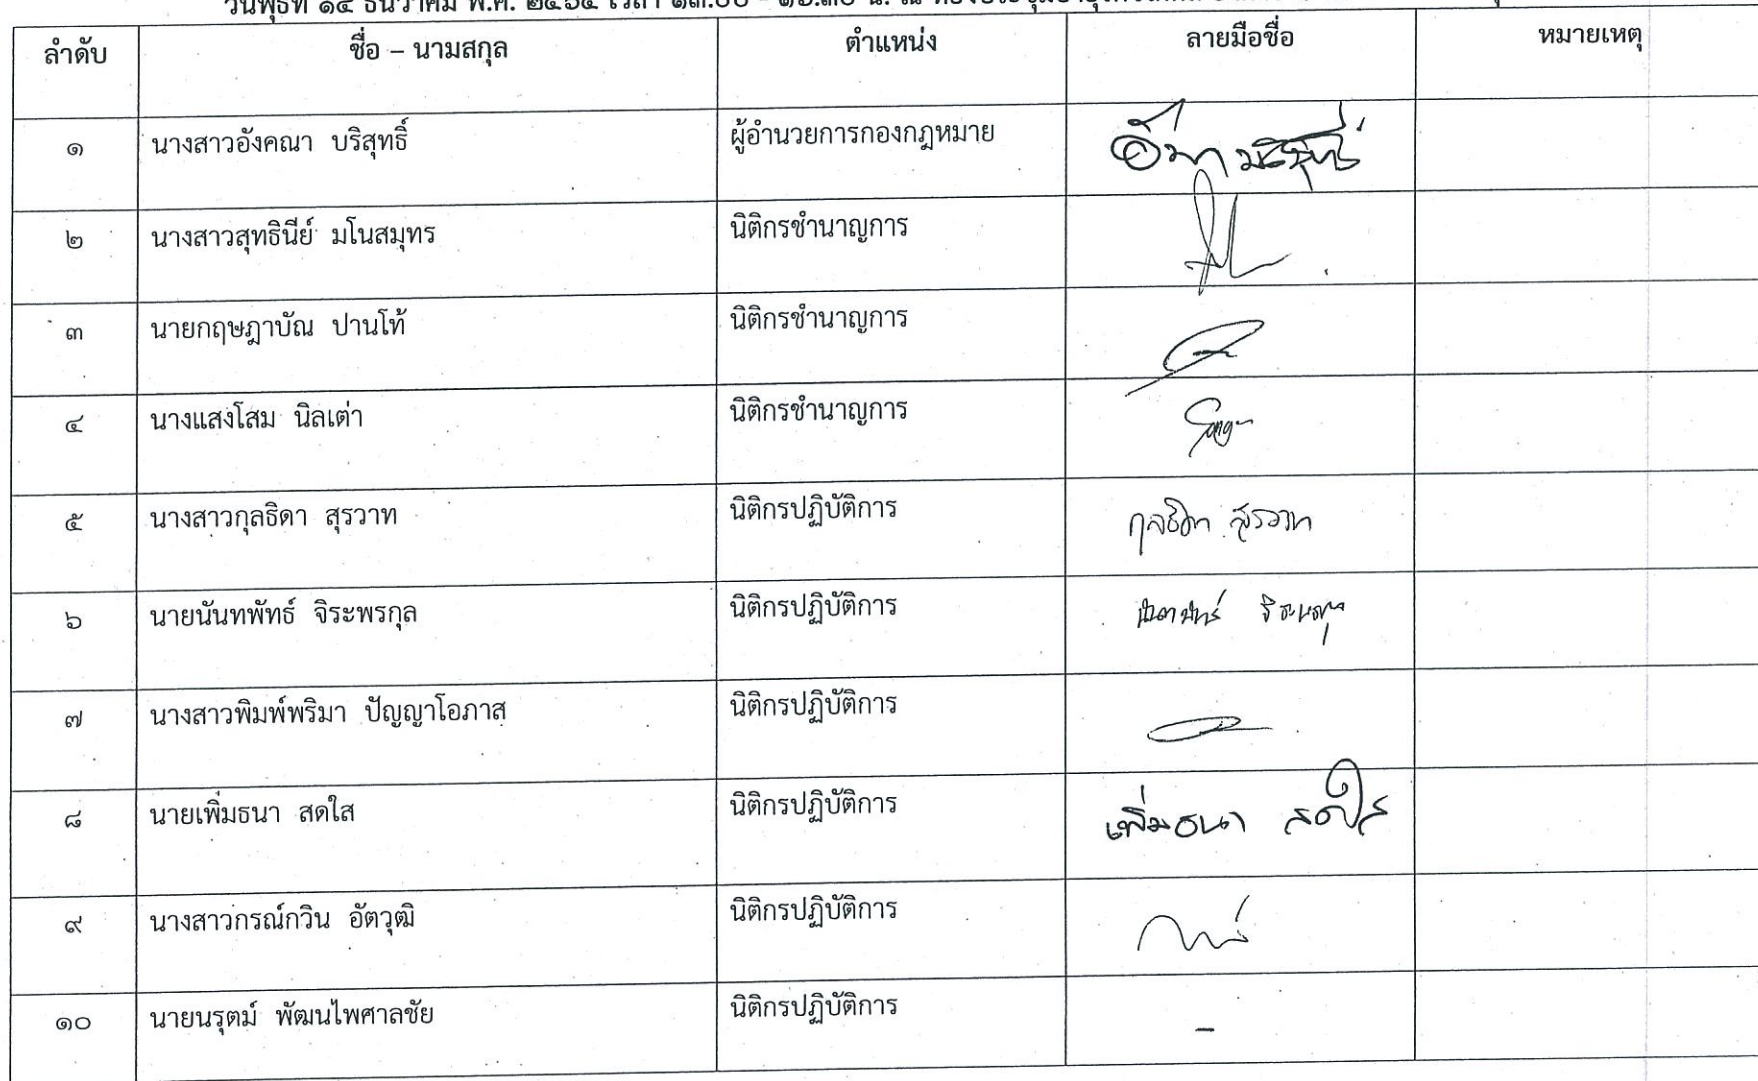 ลำดับ ชื่อ – นามสกุล ตำแหน่ง ลายมือชื่อ หมายเหตุ
๑ นางสาวอังคณา บริสุทธิ์ ผู้อำนวยการกองกฎหมาย
๒ นางสาวสุทธินีย์ มโนสมุทร นิติกรชำนาญการ
๓ นายกฤษฎาบัณ ปานโท้ นิติกรชำนาญการ
๔ นางแสงโสม นิลเต่า นิติกรชำนาญการ
๕ นางสาวกุลธิดา สุรวาท นิติกรปฏิบัติการ กุลธิดา สุรวาท
๖ นายนันทพัทธ์ จิระพรกุล นิติกรปฏิบัติการ
๗ นางสาวพิมพ์พริมา ปัญญาโอภาส นิติกรปฏิบัติการ
๘ นายเพิ่มธนา สดใส นิติกรปฏิบัติการ เพิ่มธนา สดใส
๙ นางสาวกรณ์กวิน อัตวุฒิ นิติกรปฏิบัติการ
๑๐ นายนรุตม์ พัฒนไพศาลชัย นิติกรปฏิบัติการ –